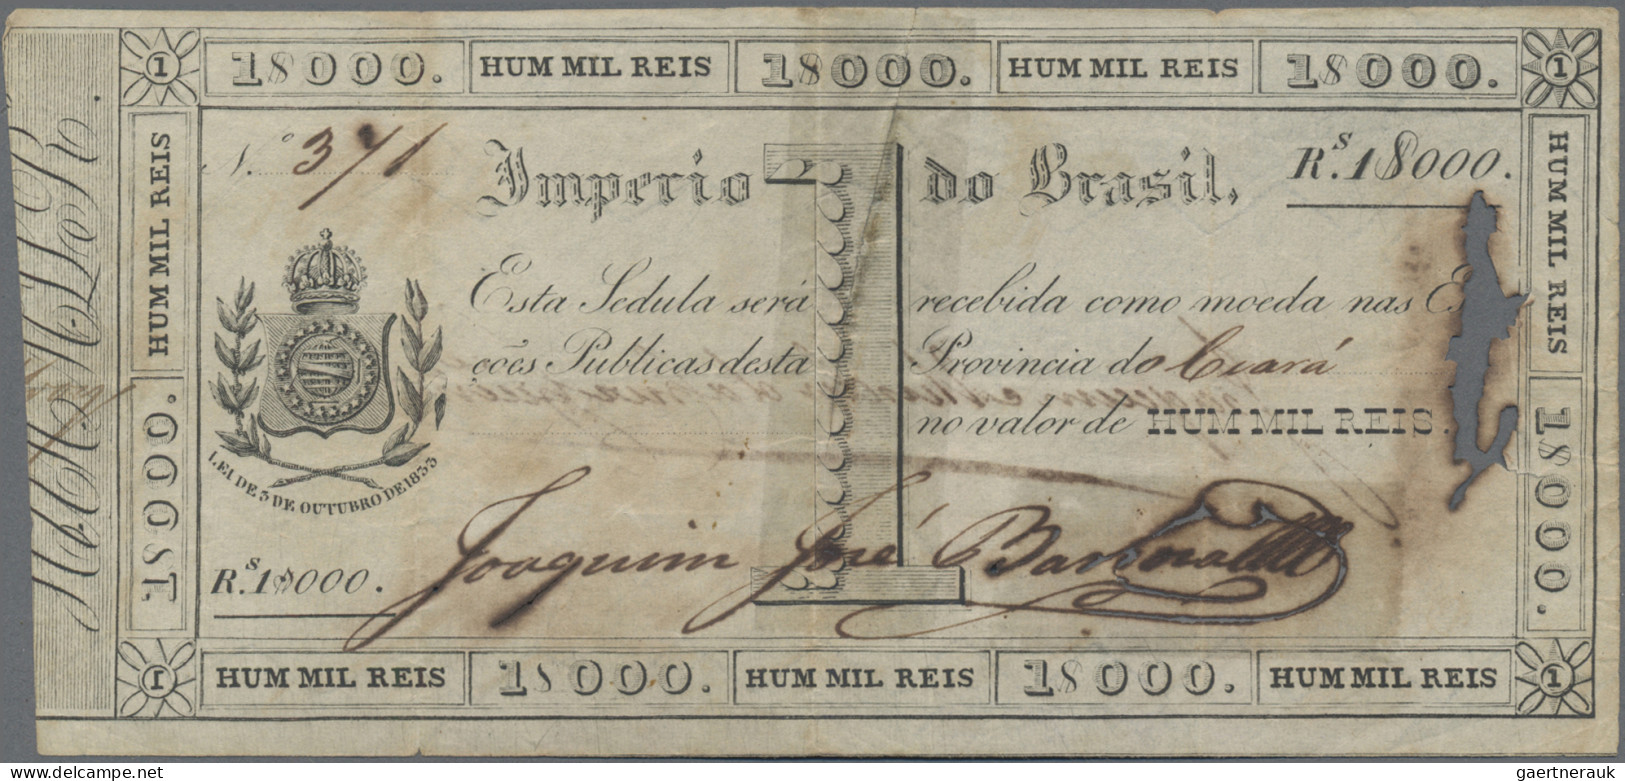 1 1$000. HUM MIL REIS 1$000. HUM MIL REIS 1$000. 1
HUM MIL REIS
1$000.
N.º 371
Imperio do Brasil.
R.s 1$000.
Esta Sedula será recebida como moeda nas E
ções Publicas desta Provincia do Ceará
no valor de HUM MIL REIS.
LEI DE 3 DE OUTUBRO DE 1833
R.s 1$000.
Joaquim José Barbosa
HUM MIL REIS
1$000.
1 HUM MIL REIS 1$000. HUM MIL REIS 1$000. HUM MIL REIS 1
gaertnerauk